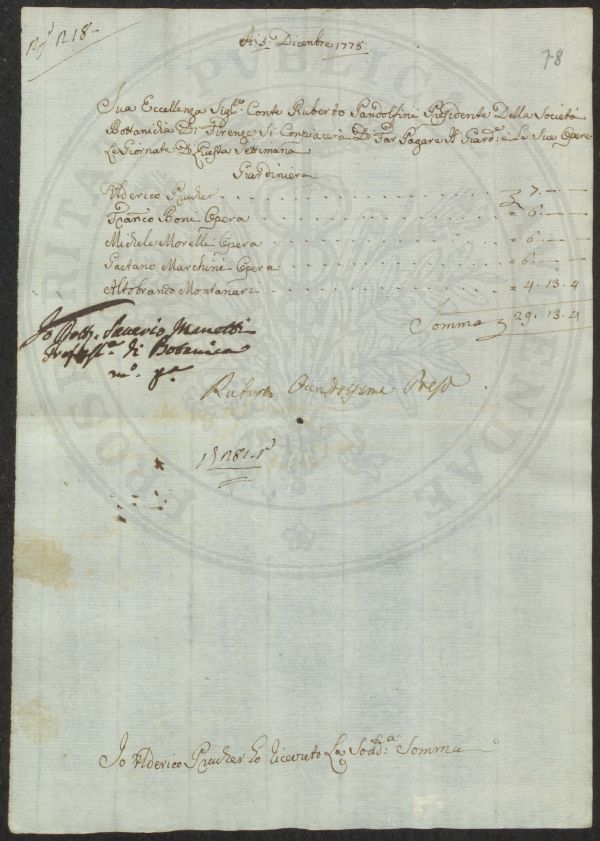 N 218
Ai 5: Dicenbre 1778
78
Sua Eccellenza Sigl:re Conte Ruberto Pandolfini Presidente Della Società
Bottanicha Di Firenze Si Conpiacerà Di Far Pagare Al Giard:re e Le Sue Opere
Le Giornate Di Questa Settimana
Giardiniera
Ulderico Prucher 7. — —
Franco Boni Opera = 6. — —
Michele Morelli Opera = 6. — —
Gaetano Marchini Opera = 6. — —
Altobrando Montanari = 4. 13. 4
Somma 29. 13. 4
Io Dott. Saverio Manetti
di Botanica
m.o p.a
Ruberto
Io Ulderico Prucher ho ricevuto La Sodd:a Somma
PUBLICAE